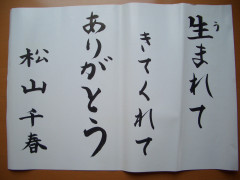 生まれて
きてくれて
ありがとう
松山千春